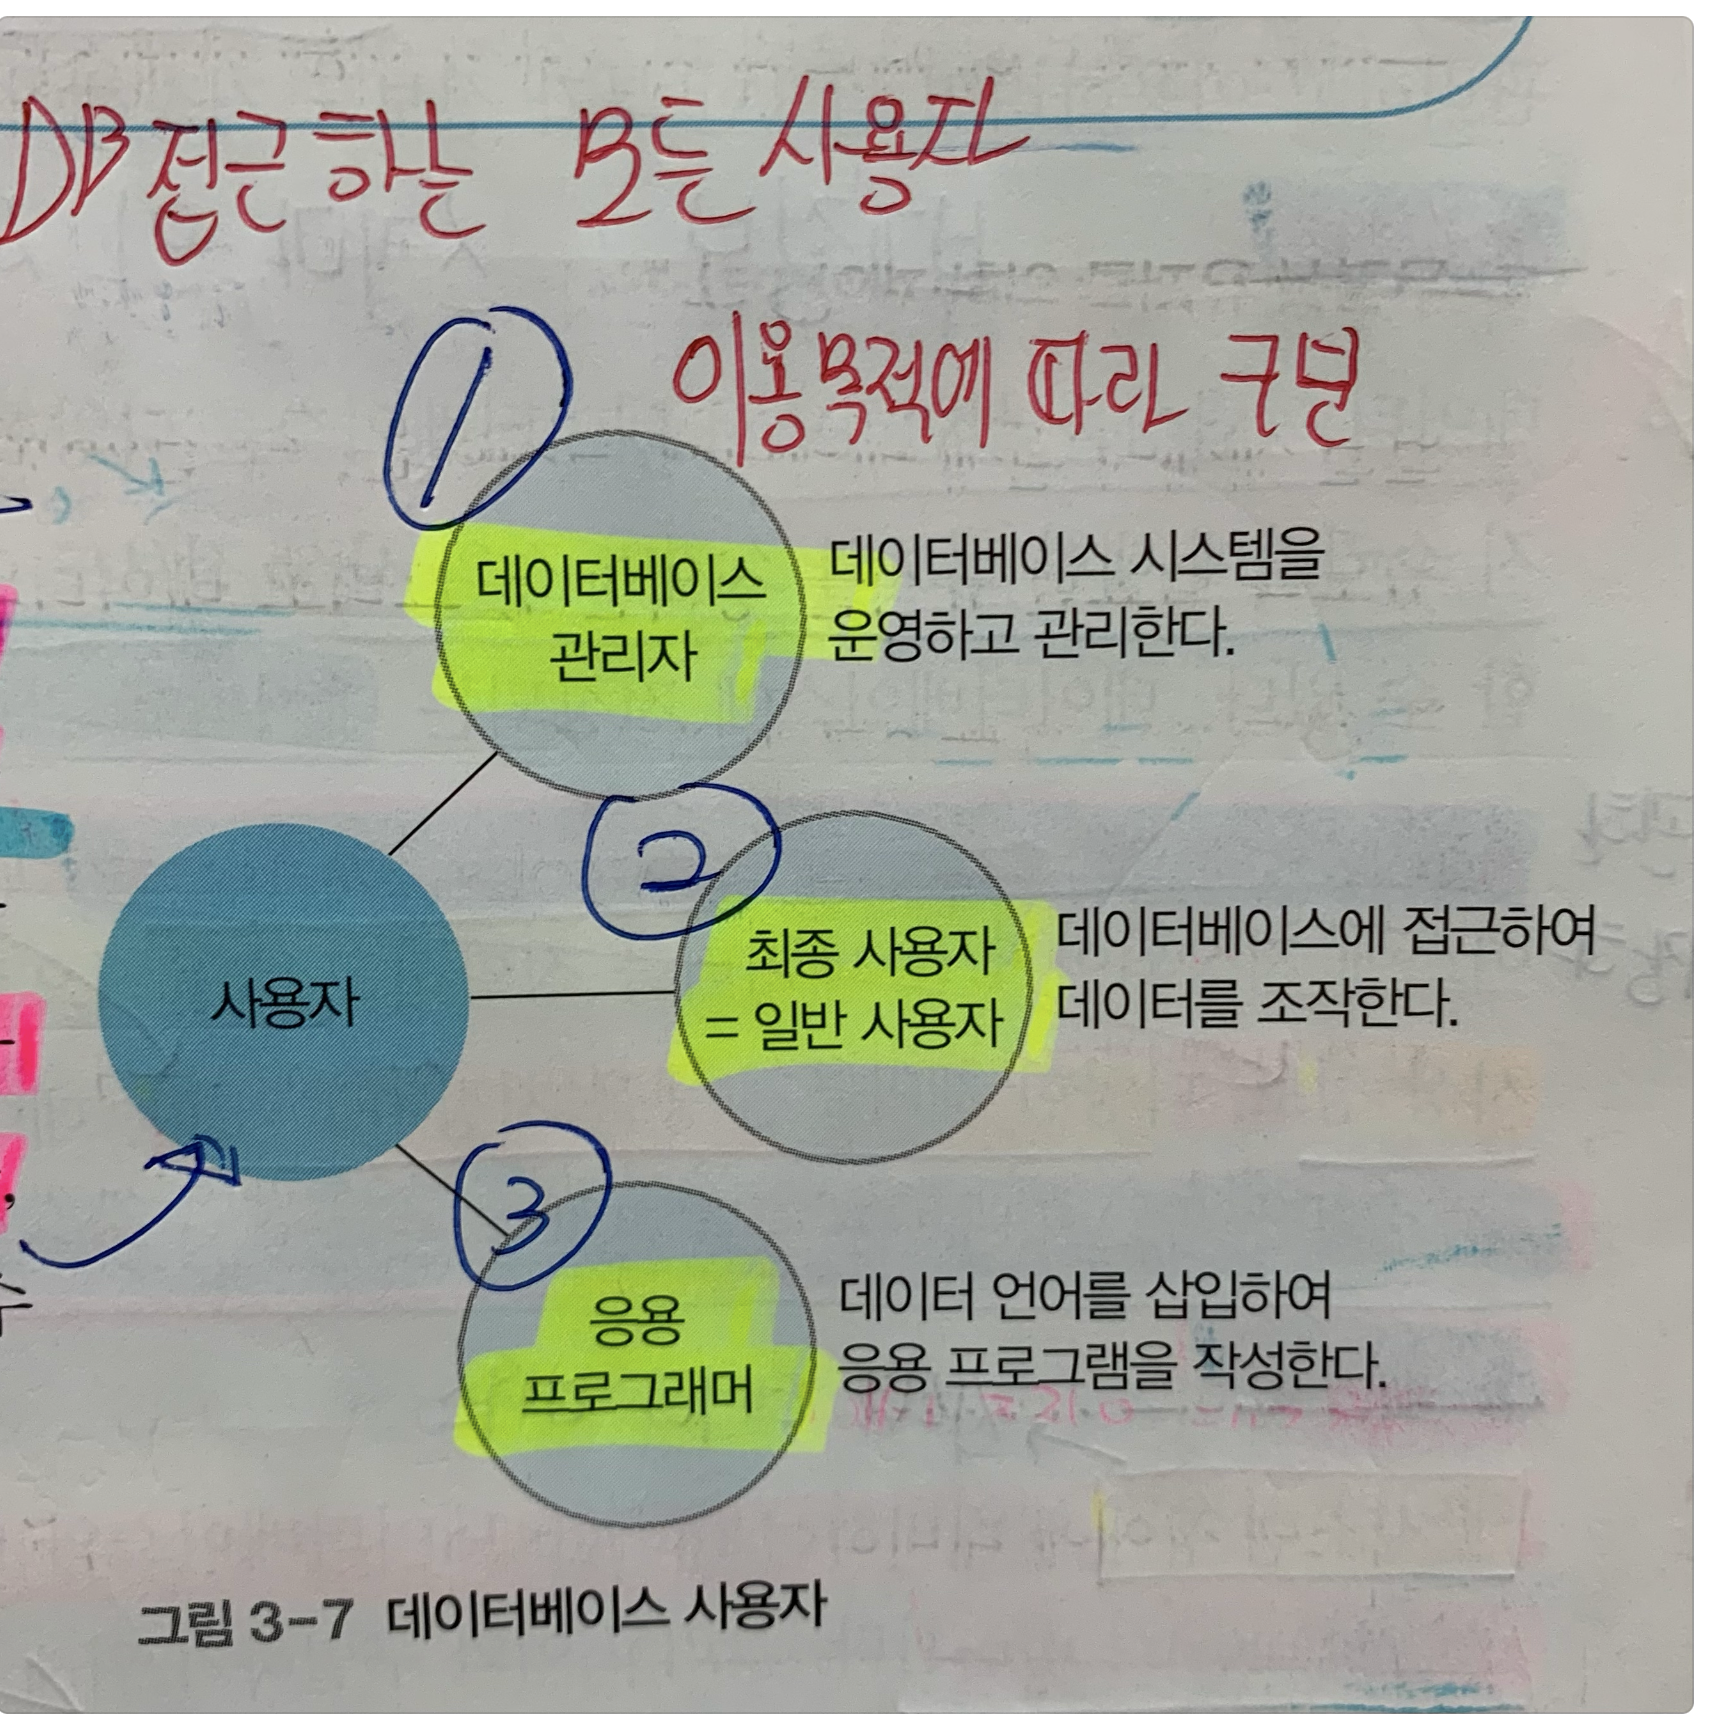 DB 접근하는 모든 사용자
이용목적에 따라 구분
1
데이터베이스
관리자
데이터베이스 시스템을
운영하고 관리한다.
2
최종 사용자
= 일반 사용자
데이터베이스에 접근하여
데이터를 조작한다.
사용자
3
응용
프로그래머
데이터 언어를 삽입하여
응용 프로그램을 작성한다.
그림 3-7 데이터베이스 사용자